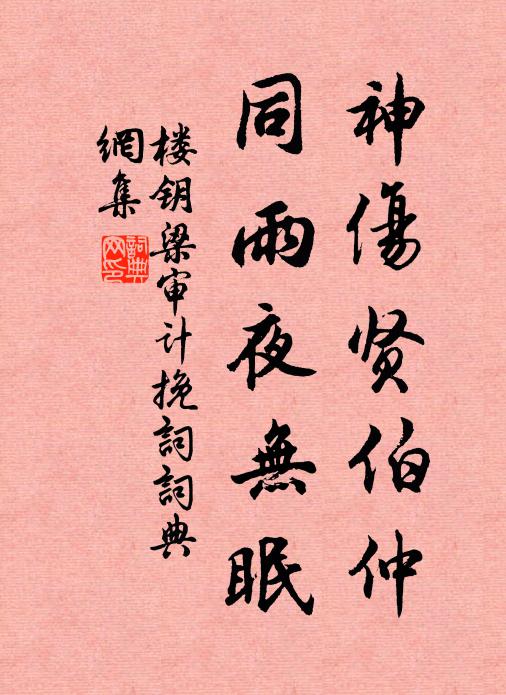 神傷贤伯仲
同雨夜無眠
楼钥梁审计挽詞詞典
網集
詞典
网印